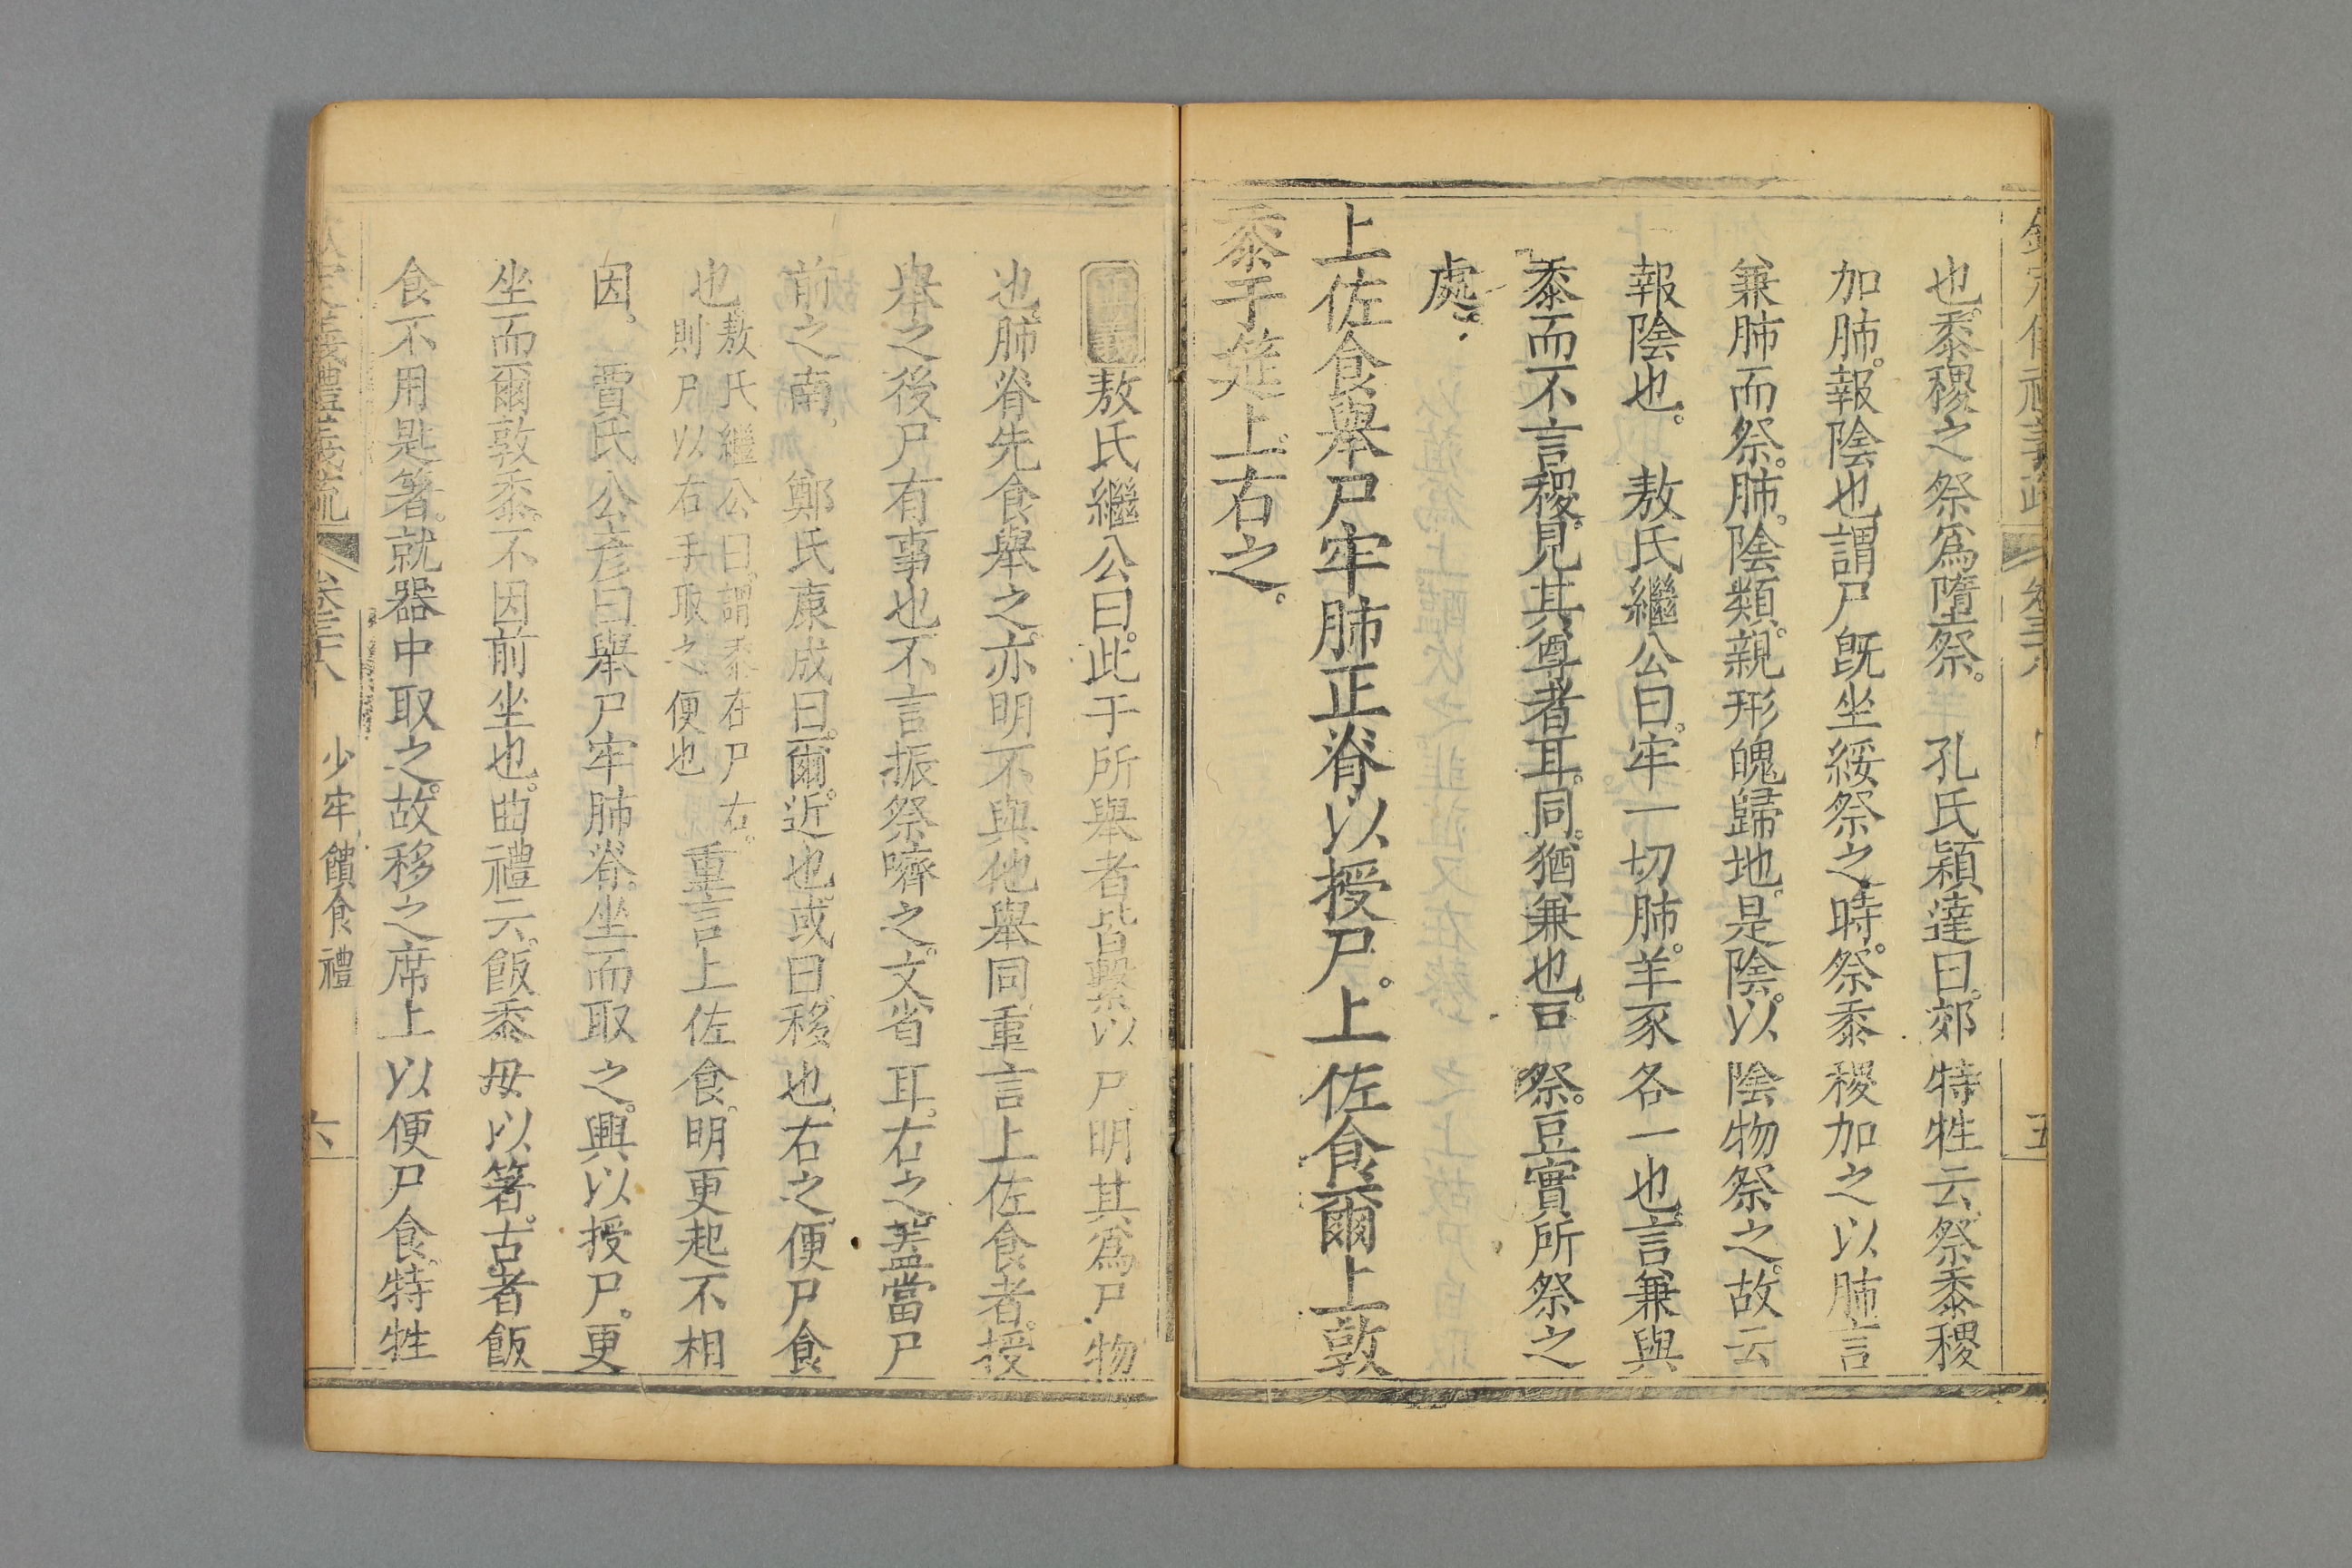 也。黍稷之祭爲墮祭。　孔氏穎達曰。郊特牲云。祭黍稷
加肺。報陰也。謂尸旣坐綏祭之時。祭黍稷加之以肺。言
兼肺而祭。肺。陰類。親形魄歸地。是陰。以陰物祭之。故云
報陰也。　敖氏繼公曰。牢一切肺。羊豕各一也。言兼與
黍而不言稷。見其尊者耳。同。猶兼也。豆祭。豆實所祭之
處。
上佐食舉尸牢肺正脊以授尸。上佐食爾上敦
黍于筵上。右之。
敖氏繼公曰。此于所舉者皆繫以尸。明其爲尸物
也。肺脊先食舉之。亦明不與他舉同。重言上佐食者。授
舉之後。尸有事也。不言振祭嚌之。文省耳。右之。蓋當尸
前之南。　鄭氏康成曰。爾。近也。或曰。移也。右之。便尸食
也。敖氏繼公曰。謂黍在尸右。則尸以右手取之便也重言上佐食。明更起不相
因。　賈氏公彦曰。舉尸牢肺脊。坐而取之。興以授尸。更
坐而爾敦黍。不因前坐也。曲禮云。飯黍毋以箸。古者飯
食不用匙箸。就器中取之。故移之席上。以便尸食。特牲
卷三十八　少牢饋食禮　六